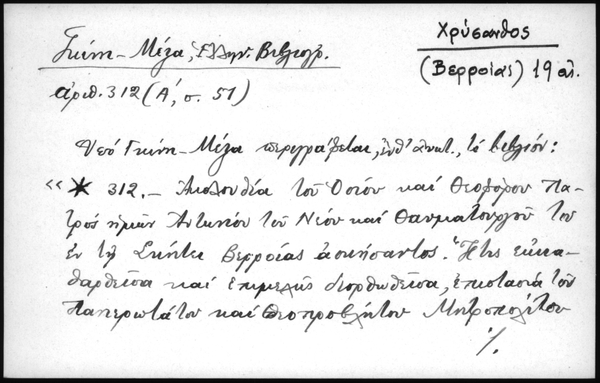 Χρύσανθος
(Βερροίας) 19 αἰ.
Γκίνη-Μέξα, Ἑλλην. Βιβλιογρ.
ἀριθ. 312 (Α΄, σ. 51)
Ὑπό Γκίνη-Μέξα περιγράφεται, ἐνθ' ἀνωτ., τό βιβλίον:
«✱ 312.- Ἀκολουθία τοῦ Ὁσίου καί Θεοφόρου Πα-
τρός ἡμῶν Ἀντωνίου τοῦ Νέου καί Θαυματουργοῦ τοῦ
ἐν τῇ Σκήτει Βερροίας ἀσκήσαντος. Ἥτις εὐκα-
θαρθεῖσα καί ἐπιμελῶς διορθωθεῖσα, ἐπιστασίᾳ τοῦ
Πανιερωτάτου καί Θεοπροβλήτου Μητροπολίτου
./.